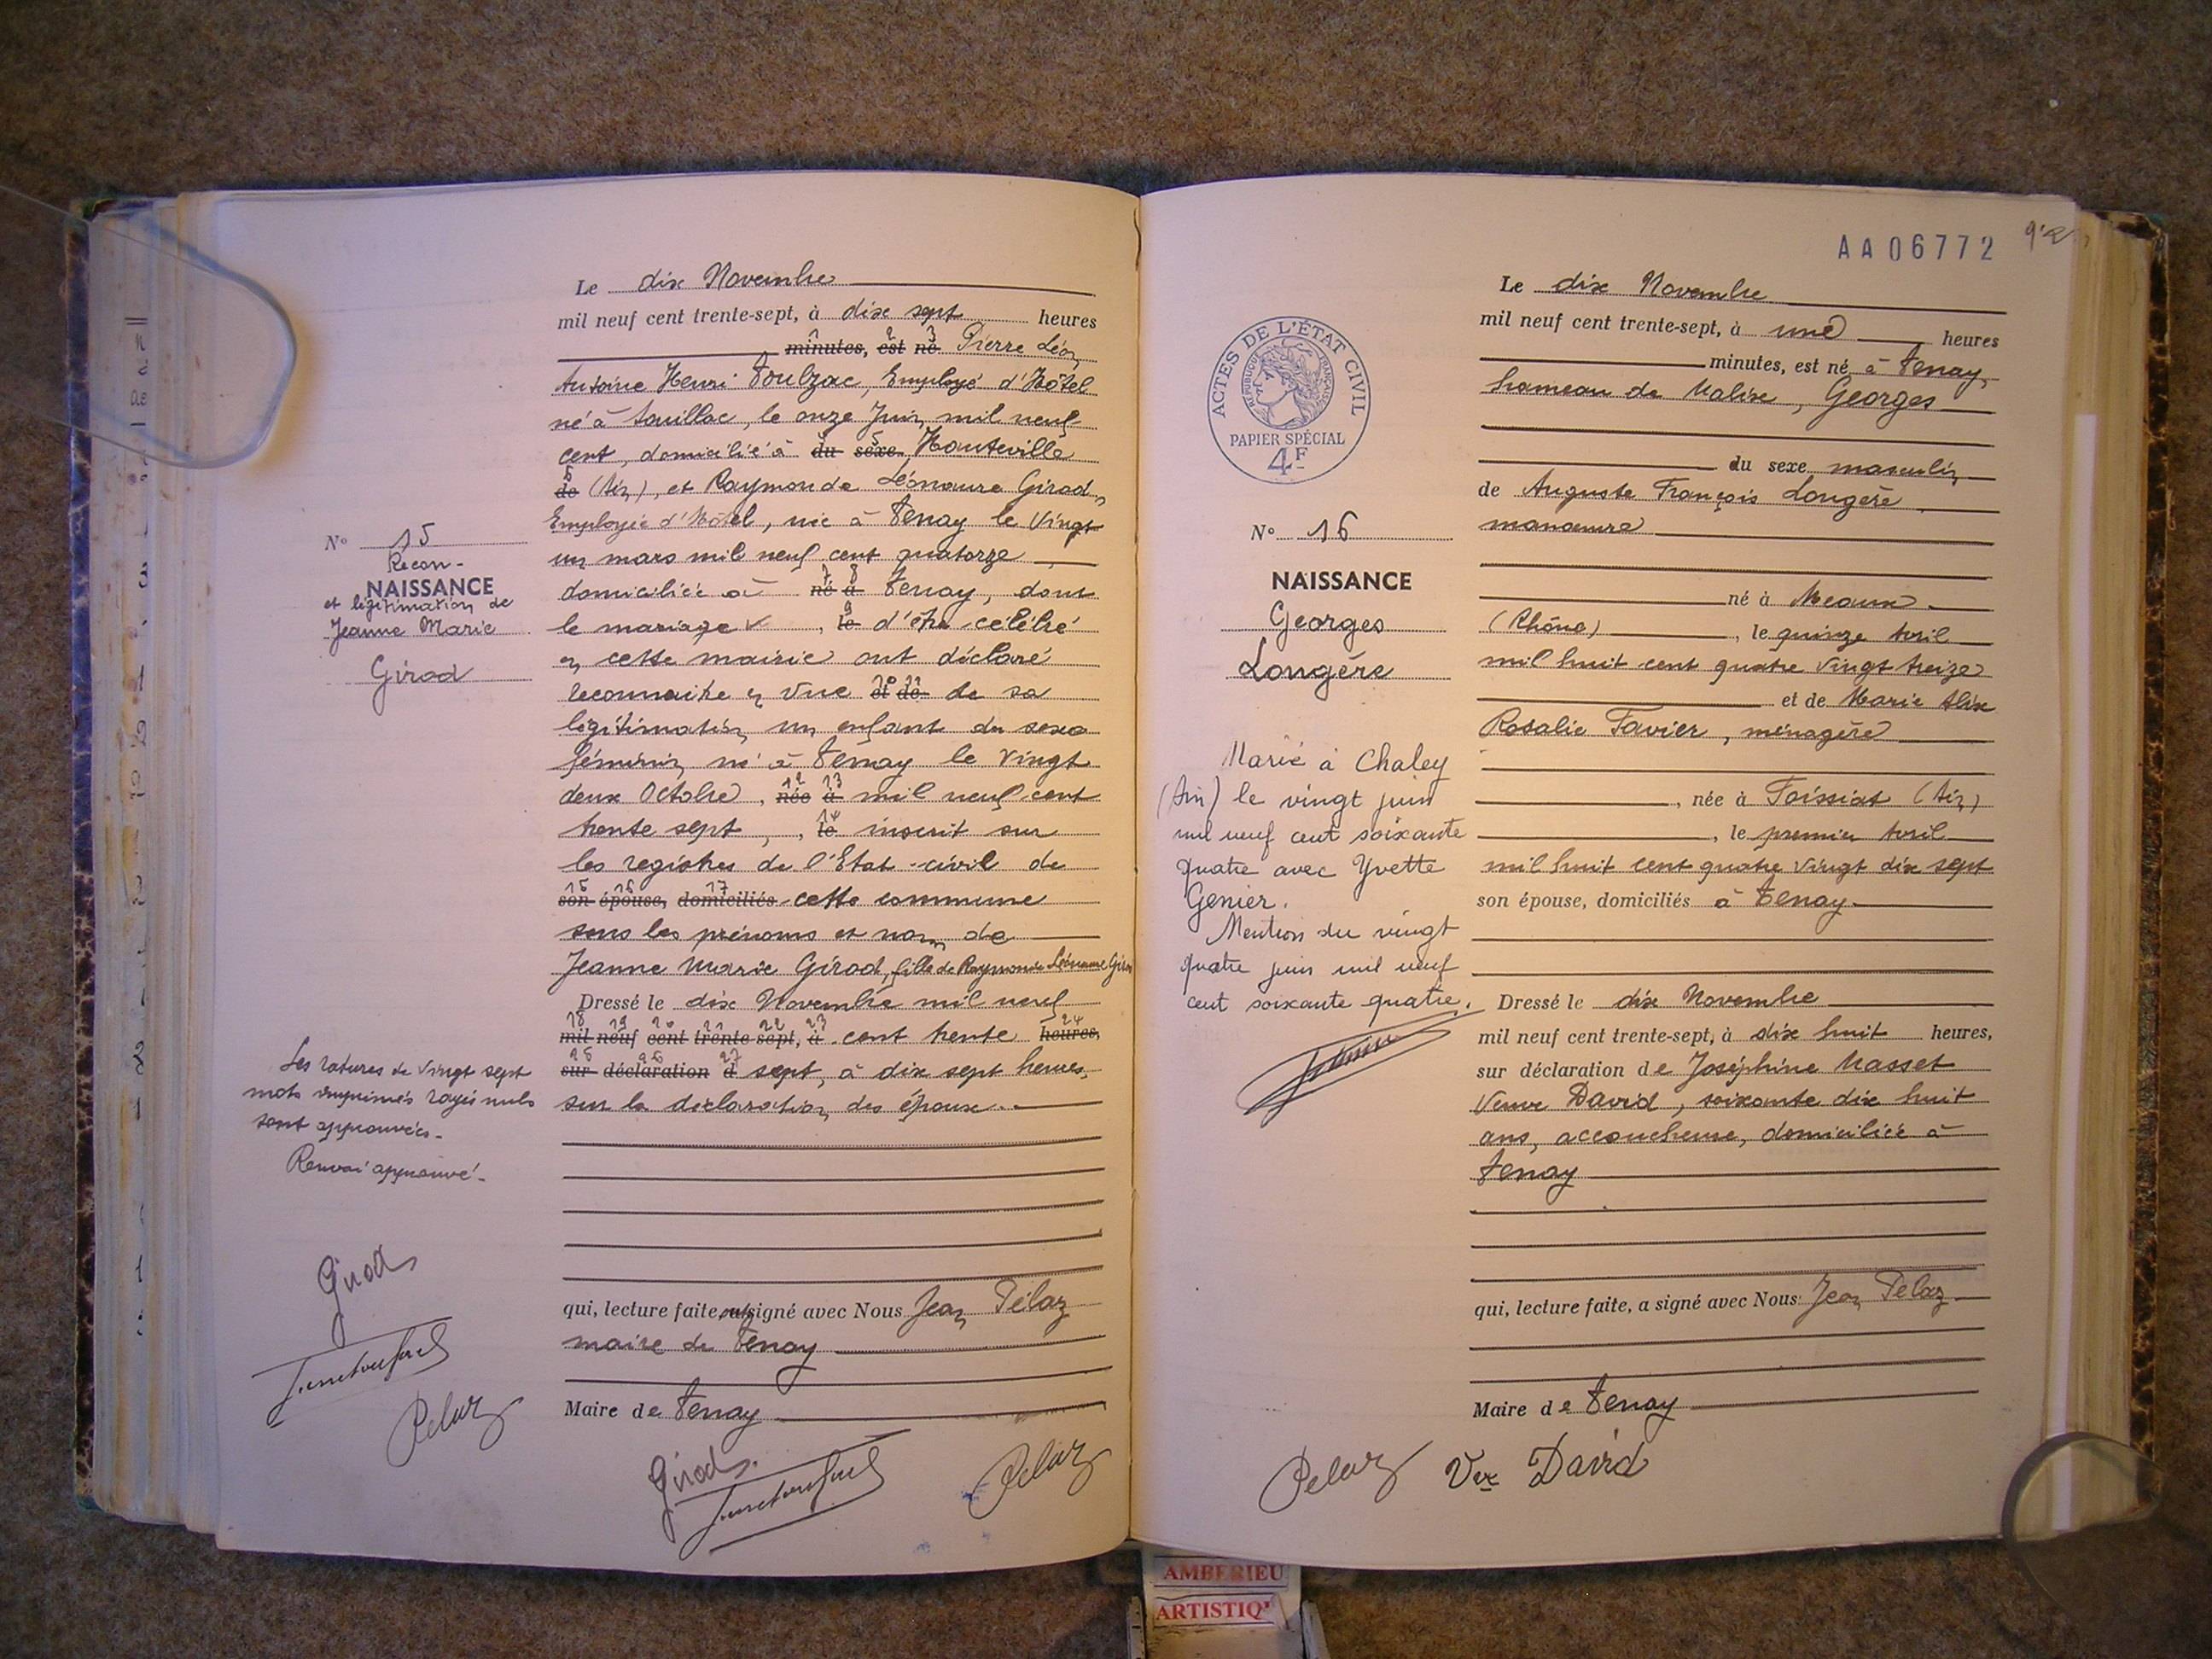 Le dix Novembre
mil neuf cent trente-sept, à dix sept heures
1 2 3
minutes, est né Pierre Léon
Antoine Henri Toulzac, Employé d'Hôtel
né à Souillac, le onze Juin mil neuf
cent, domicilié à du sexe Hauteville
de (Ain), et Raymonde Léonaure Girod,
Employée d'Hôtel, née à Tenay le Vingt
un mars mil neuf cent quatorze
domiciliée à né à Tenay, dont
le mariage v , le d'être célébré
en cette mairie ont déclaré
reconnaître en vue et de de sa
légitimation un enfant du sexe
féminin né à Tenay le Vingt
deux Octobre, née à mil neuf cent
trente sept, , le inscrit sur
les registres de l'Etat-civil de
son épouse, domiciliés cette commune
sous les prénoms et nom de
Jeanne Marie Girod, fille de Raymonde Léonaure Girod
Dressé le dix Novembre mil neuf
mil neuf cent trente-sept, à cent trente heures,
sur déclaration d sept, à dix sept heures,
sur la déclaration des époux.
qui, lecture faite, ont signé avec Nous Jean Pélaz
maire de Tenay
Maire de Tenay
Girod
Pelaz
N° 15
Recon-
NAISSANCE
et légitimation de
Jeanne Marie
Girod
Les ratures de Vingt sept
mots imprimés rayés nuls
sont approuvées.
Renvoi approuvé.
Girod
Pelaz
AA06772
Le dix Novembre
mil neuf cent trente-sept, à une heures
minutes, est né à Tenay,
hameau de Malix, Georges
du sexe masculin
de Auguste François Longère
manœuvre
né à Meaux
(Rhône) , le quinze Avril
mil huit cent quatre vingt treize
et de Marie Alix
Rosalie Favier, ménagère
, née à Foissiat (Ain)
, le premier Avril
mil huit cent quatre vingt dix sept
son épouse, domiciliés à Tenay
Dressé le dix Novembre
mil neuf cent trente-sept, à dix huit heures,
sur déclaration de Joséphine Masset
Veuve David, soixante dix huit
ans, accoucheuse, domiciliée à
Tenay
qui, lecture faite, a signé avec Nous Jean Pelaz
Maire de Tenay
Pelaz Vve David
ACTES DE L'ÉTAT CIVIL
RÉPUBLIQUE FRANÇAISE
PAPIER SPÉCIAL
4F
N° 16
NAISSANCE
Georges
Longère
Marié à Chaley
(Ain) le vingt juin
mil neuf cent soixante
quatre avec Yvette
Genier.
Mention du vingt
quatre juin mil neuf
cent soixante quatre.
AMBERIEU
ARTISTIQ'